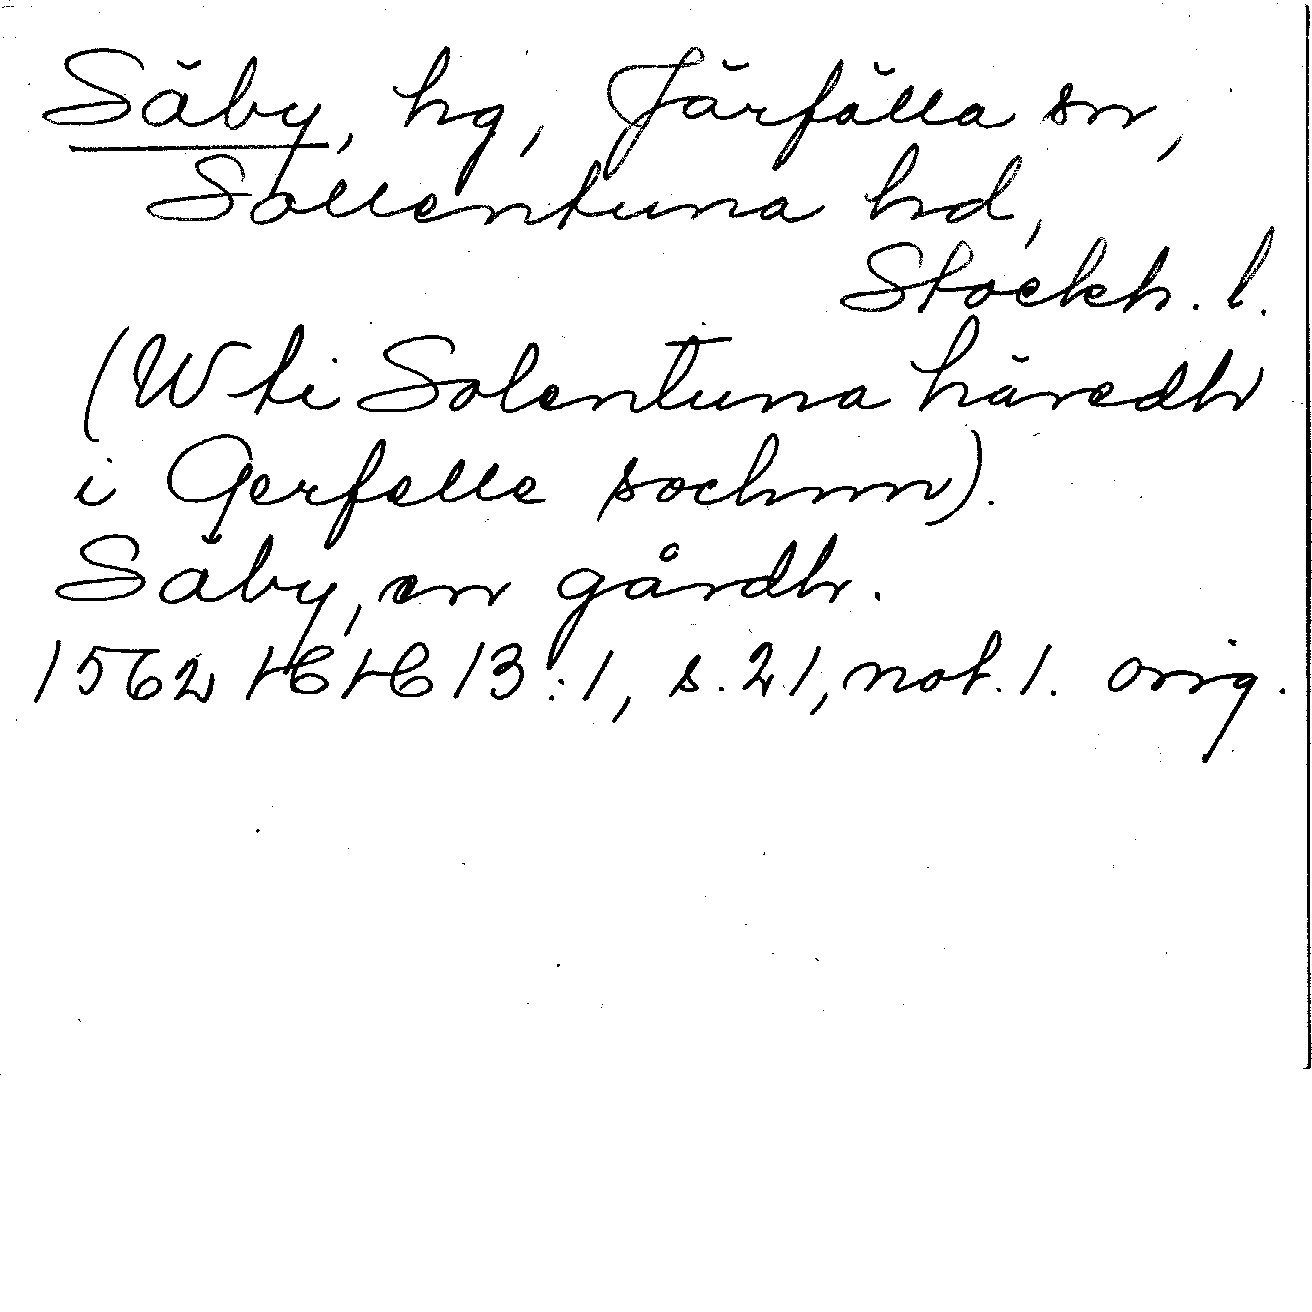 Säby, hg, Järfälla sn,
Sollentuna hd,
Stockh. l.
(W ti Solentuna häredh
i Gerfelle sochnn).
Säby, en gårdh.
1562 HH 13:1, s. 21, not. 1. orig.